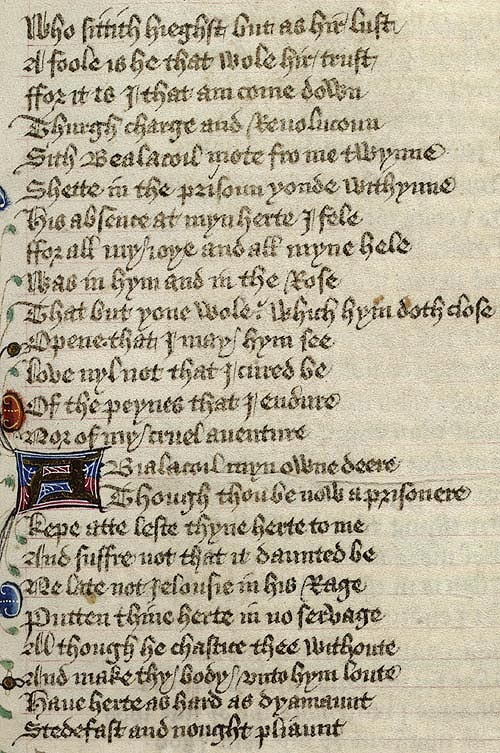 Who sittith hieghst but as hir lust
A foole is he that wole hir trust
ffor it is I that am come down
Thurgh charge and Revolucoun
Sith Bealacoil mote fro me twynne
Shette in the prisoun yonde withynne
His absence at myn herte I fele
ffor all my ioye and all myne hele
Was in hym and in the Rose
That but yone wole which hym doth close
Opene that I may hym see
Love nyl not that I cured be
Of the peynes that I endure
Nor of my cruel auenture
A Bialacoil myn owne deere
Though thou be now a prisonere
Kepe atte leste thyne herte to me
And suffre not that it daunted be
Ne late not Ielousie in his Rage
Putten thine herte in no servage
Al though he chastice thee withoute
And make thy body vnto hym loute
Haue herte as hard as dyamaunt
Stedefast and nought pliaunt